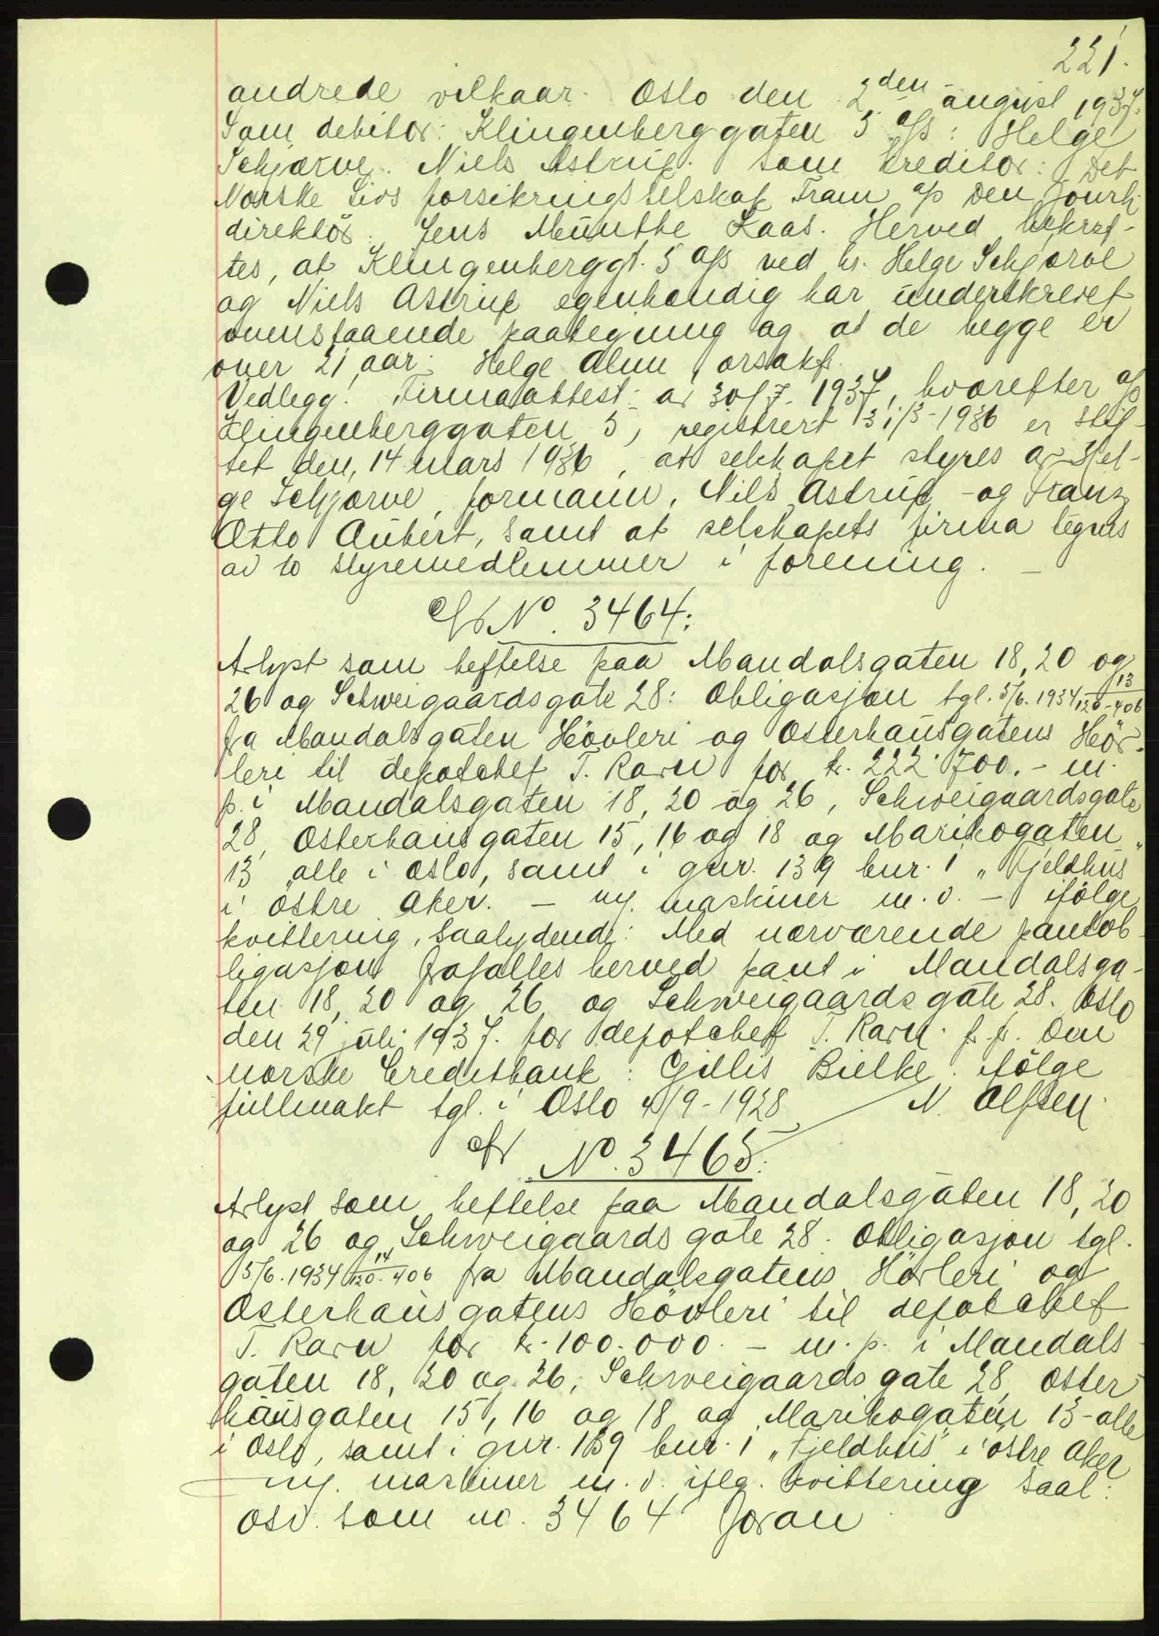 221.
andrede vilkaar. Oslo den 2den august 1937.
Som debitor: Klingenberggaten 5 a/s: Helge
Schjærve. Niels Astrup. Som kreditor: Det
Norske Livsforsikringsselskap Fram a/s Den
direktör: Jens Munthe Kaas. Herved bekræf-
tes, at Klingenberggt. 5 a/s ved hr. Helge Schjærve
og Niels Astrup egenhændig har underskrevet
ovenstaaende paategning og at de begge er
over 21 aar. Helge Alme, orsakf.
Vedlegg: Firmaattest av 30/7-1937, hvorefter a/s
Klingenberggaten 5, registrert 31/3-1936 er stif-
tet den 14 mars 1936, at selskapet styres av Hel-
ge Schjærve, formann, Nils Astrup og Franz
Otto Aubert, samt at selskapets firma tegnes
av to styremedlemmer i forening. –
No. 3464:
Avlyst som heftelse paa Mandalsgaten 18, 20 og
26 og Schweigaardsgate 28: Obligasjon tgl. 5/6. 1934 13/120-406
fra Mandalsgaten Hövleri og Osterhausgatens Höv-
leri til depotchef T. Ravn for kr. 222.700.- m.
p. i Mandalsgaten 18, 20 og 26, Schweigaardsgate
28, Osterhausgaten 15, 16 og 18 og Maribogaten
13 alle i Oslo, samt i gnr. 139 bnr. 1 "Fjeldhus"
i östre Aker. – m. maskiner m. v. – ifölge
kvittering, saalydende: Med nærværende pantob-
ligasjon frafalles herved pant i Mandalsga-
ten 18, 20 og 26 og Schweigaards gate 28. Oslo
den 29 juli 1937. for depotchef T. Ravn. p.p. Den
norske Creditbank: Gillis Bielke. ifölge
fullmakt tgl. i Oslo 4/9-1928 N. Olfsen.
No. 3465:
Avlyst som heftelse paa Mandalsgaten 18, 20
og 26 og Schweigaards gate 28. Obligasjon tgl.
5/6. 1934 14/120-406 fra Mandalsgatens Hövleri og
Osterhausgatens Hövleri til depotchef
T. Ravn for kr. 100.000. – m. p. i Mandals-
gaten 18, 20 og 26, Schweigaards gate 28, Oster-
hausgaten 15, 16 og 18 og Maribogaten 13 - alle
i Oslo, samt i gnr. 139 bnr. 1 "Fjeldhus" i östre Aker
m. maskiner m. v. iflg. kvittering saal:
osv. som no. 3464 foran